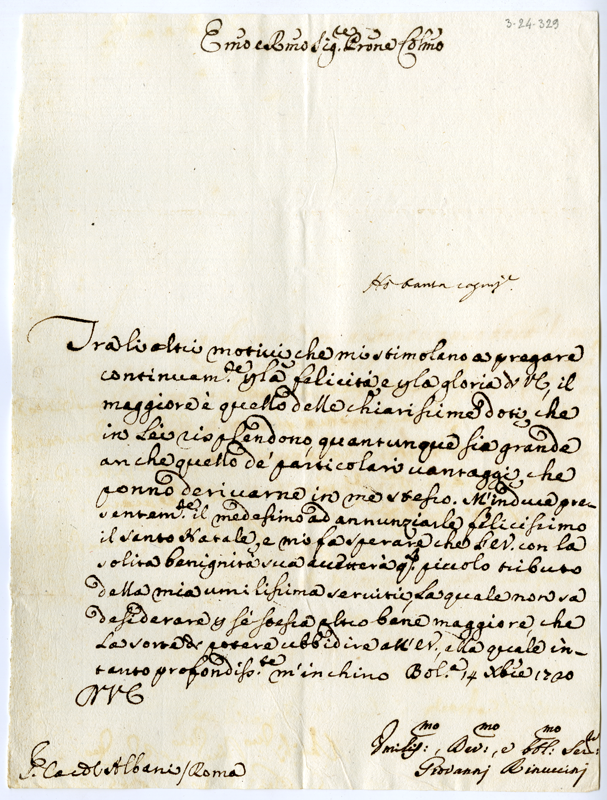 3-24-329
Emo e Rmo Sig.re Prone Colmo
Ho tanta
Tra li altri motivi che mi stimolano a pregare
continuam.te p la felicità e p la gloria di VE, il
maggiore è quello delle chiarissime doti, che
in Lei risplendono, quantunque sia grande
anche quello de' particolari vantaggi, che
ponno derivarne in me stesso. M'induce pre-
sentem.te il medesimo ad annunziarle felicissimo
il santo Natale, e mi fa sperare che l'EV. con la
solita benignità sua accetterà q.to piccolo tributo
della mia umilissima servitù, la quale non sa
desiderare p sé stessa altro bene maggiore, che
la sorte di potere ubbidire all'EV. alla quale in-
tanto profondiss.te m'inchino Bol.a 14 Xbre 1720
DVE
Umiliss:mo, Dev:mo, e obl:mo Ser:
Giovanni Rinuccini
S. Card Albani / Roma